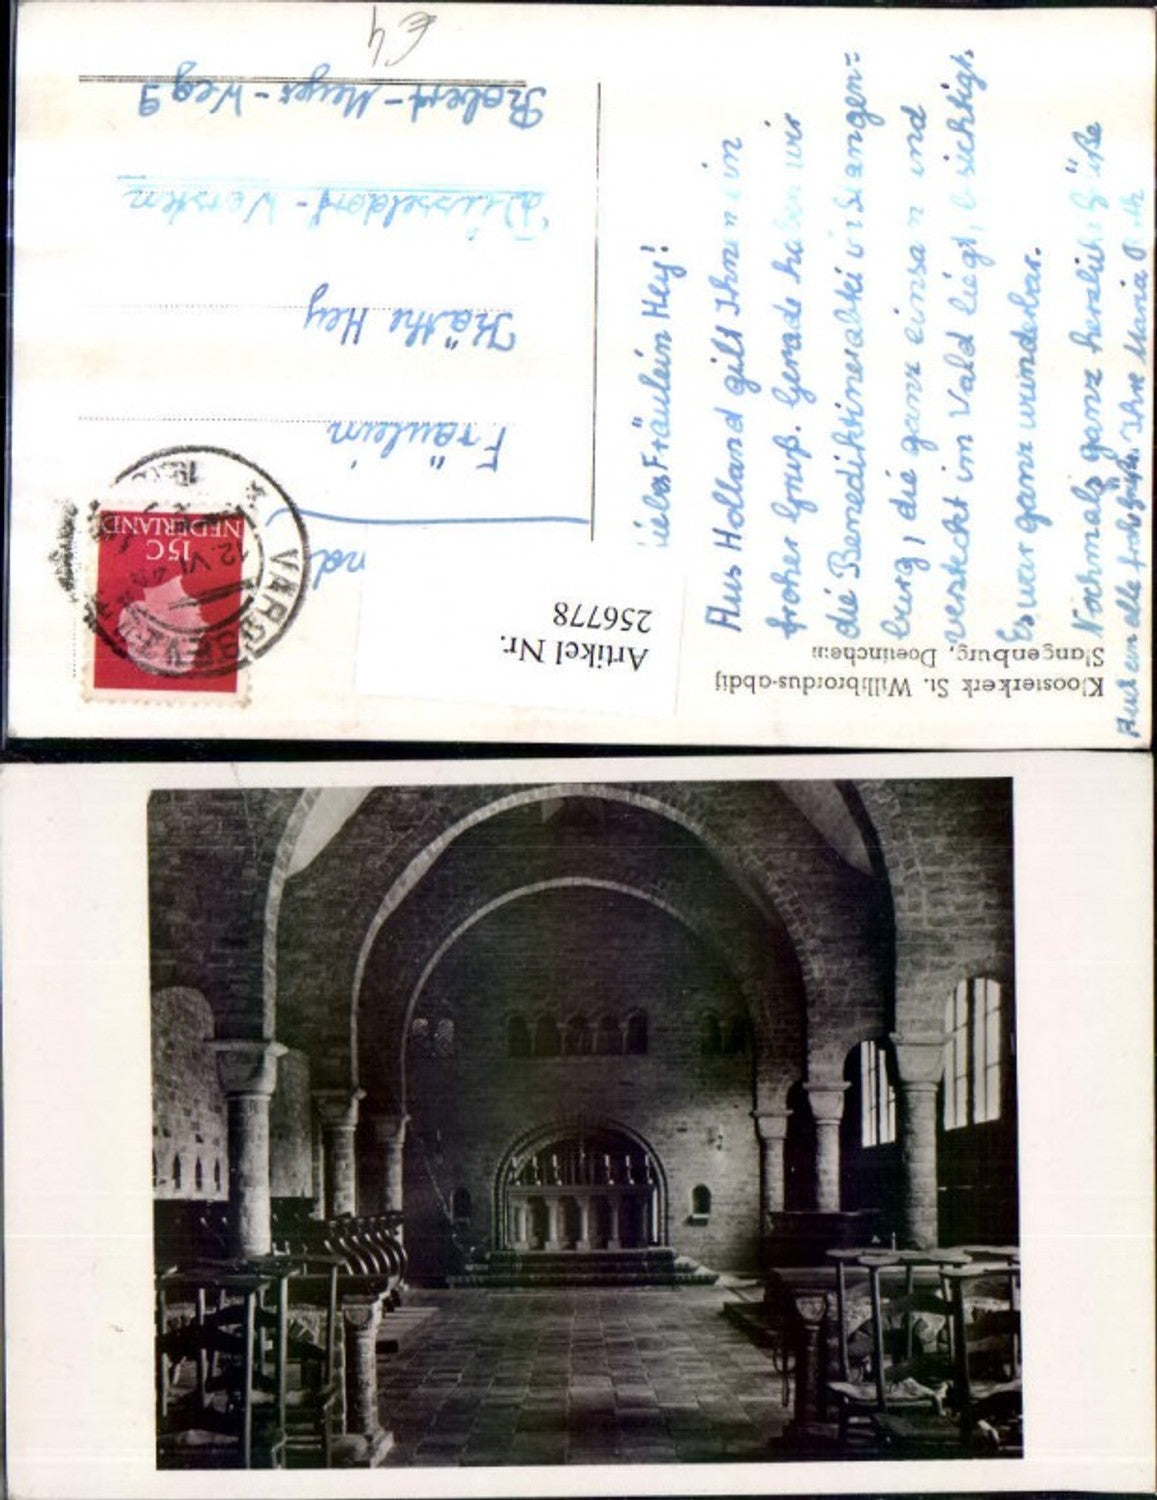 Kloosterkerk St. Willibrordus-abdij
Slangenburg, Doetinchem
Artikel Nr.
256778
Liebes Fräulein Hey!
Aus Holland gilt Ihnen ein
froher Gruß. Gerade haben wir
die Benediktinerabtei in Slangen=
burg, die ganz einsam und
versteckt im Wald liegt, besichtigt.
Es war ganz wunderbar.
Nochmals ganz herzliche Grüße
Ihre Maria
NEDERLAND
15C
VARSSEVELD
12 VI
Fräulein
Käthe Hey
Düsseldorf-Wersten
Robert-Meyer-Weg 9
€4